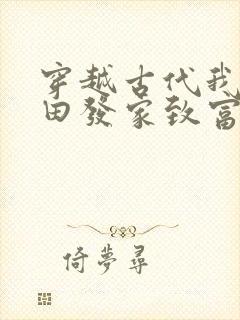 穿越古代我
田發家致富
倚夢尋